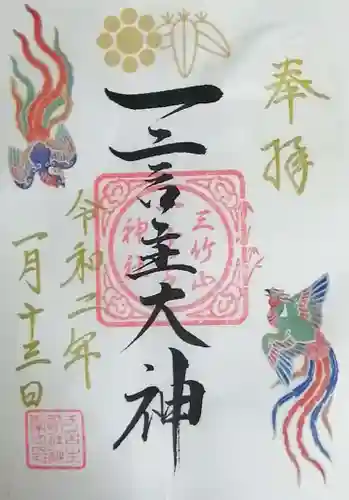 奉拝
一言主大神
三竹山
神社
令和二年
一月十三日